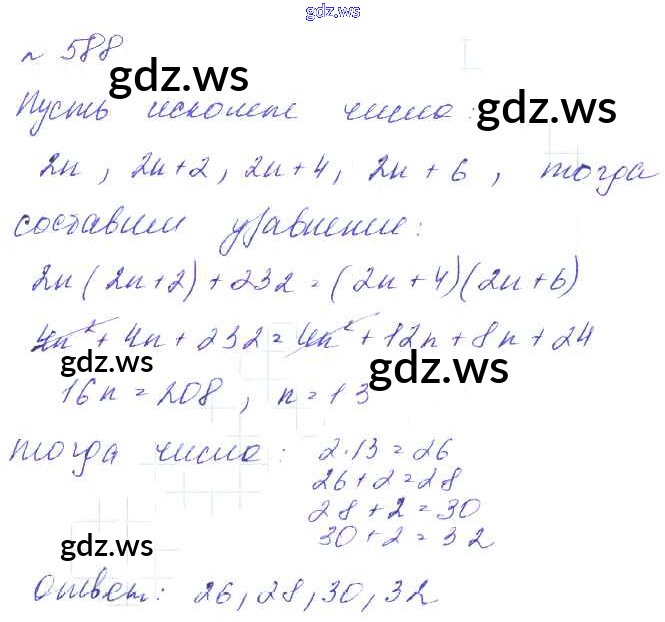 gdz.ws
№ 588
gdz.ws
Пусть искомые числа:
gdz.ws
2n, 2n+2, 2n+4, 2n+6, тогда
составим уравнение:
2n(2n+2)+232=(2n+4)(2n+6)
4n²+4n+232=4n²+12n+8n+24
gdz.ws
gdz.ws
16n=208, n=13
тогда числа: 2·13=26
26+2=28
28+2=30
30+2=32
gdz.ws
Ответ: 26, 28, 30, 32